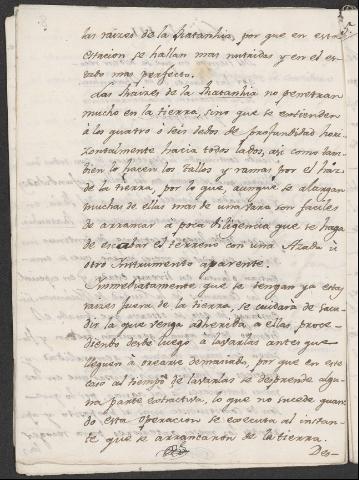 las raices de la Ratanhia, por que en esta
estacion se hallan mas nutridas y en el es-
tado mas perfecto.
Las Raices de la Ratanhia no penetran
mucho en la tierra, sino que se extienden
á los quatro ó seis dedos de profundidad hori-
zontalmente hacia todos lados, asi como tam-
bien lo hacen los tallos y ramas por el haz
de la tierra, por lo que, aunque se alargan
muchas de ellas mas de una vara son faciles
de arrancar á poca diligencia que se haga
de escabar el terreno con una Azada ú
otro Instrumento aparente.
Immediatamente que se tengan ya estas
raices fuera de la tierra, se cuidará de sacu-
dir la que venga adherida a ellas, proce-
diendo desde luego á lavarlas antes que
lleguen á orearse demasiado, por que en este
caso al tiempo de lavarlas se desprende algu-
na parte extractiva, lo que no sucede quan-
do esta operacion se executa al instan-
te que se arrancaron de la tierra.
Des-